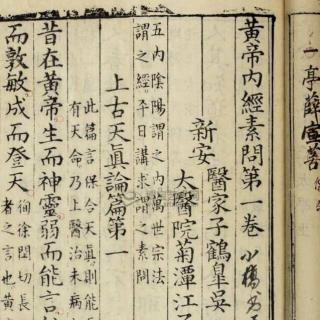 一亭薛
黃帝內經素問第一卷
新安
醫家子鶴皐吳
太醫院菊潭江
五內陰陽謂之內萬世宗法
謂之經平日講求謂之問
上古天眞論篇第一
此篇言保合天眞則能
有天命乃上醫治未病
昔在黃帝生而神靈弱而能言
而敦敏成而登天
徇徐閏切長
者之言也黃